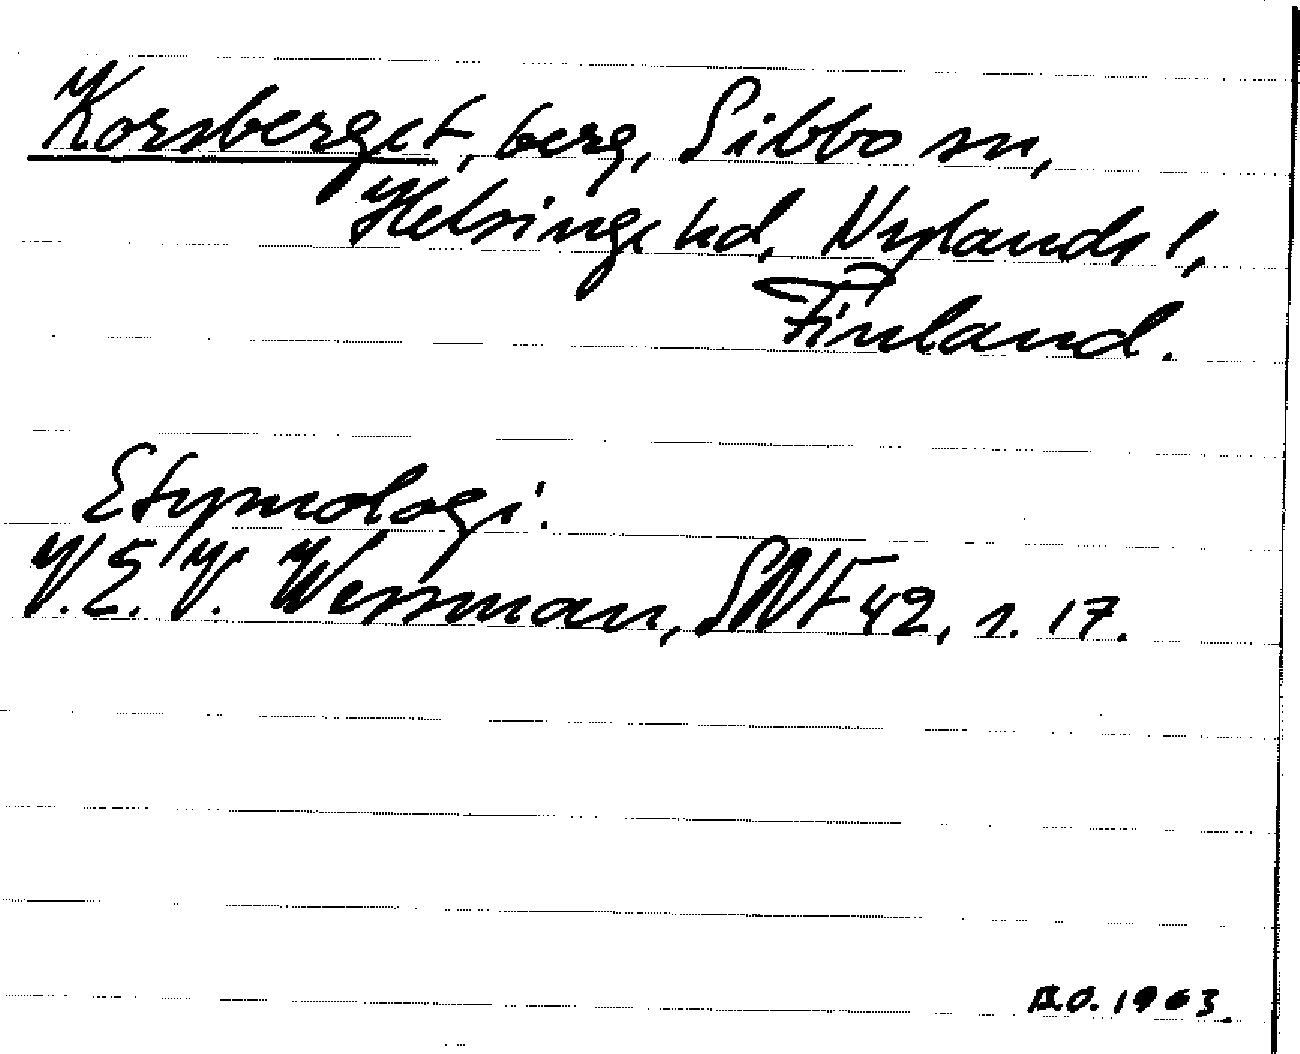 Korsberget, berg, Sibbo sn,
Helsinge hd, Nylands l,
Finland.
Etymologi.
V.E.V. Wessman, SNF 42, s. 17.
B.O. 1963.